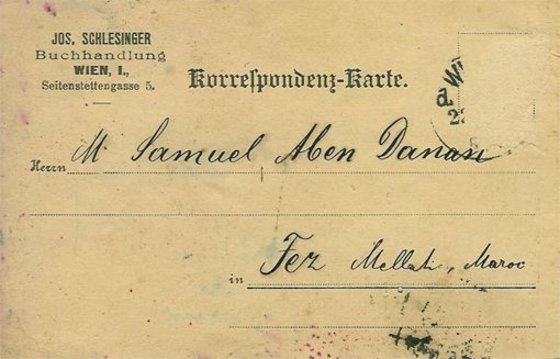 JOS. SCHLESINGER
Buchhandlung
WIEN, I.,
Seitenstettengasse 5.
Korrespondenz-Karte.
Herrn M Samuel Aben Danan
in Fez Mellah, Maroc